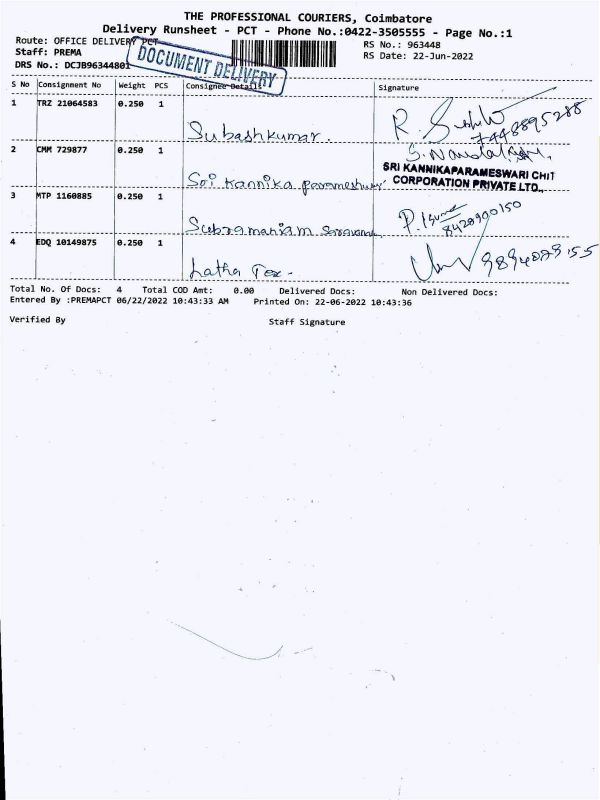 THE PROFESSIONAL COURIERS, Coimbatore
Delivery Runsheet - PCT - Phone No.:0422-3505555 - Page No.:1
Route: OFFICE DELIVERY PCT
RS No.: 963448
Staff: PREMA
RS Date: 22-Jun-2022
DRS No.: DCJB96344801
DOCUMENT DELIVERY
S No Consignment No Weight PCS Consignee Details Signature
1 TRZ 21064583 0.250 1 Subashkumar. 7448895288
2 CMM 729877 0.250 1 Sri Kannika parameshwari
SRI KANNIKAPARAMESWARI CHIT
CORPORATION PRIVATE LTD.,
3 MTP 1160885 0.250 1 Subramaniam 8428900150
4 EDQ 10149875 0.250 1 Latha Tex-
Total No. Of Docs: 4 Total COD Amt: 0.00 Delivered Docs: Non Delivered Docs:
Entered By :PREMAPCT 06/22/2022 10:43:33 AM Printed On: 22-06-2022 10:43:36
Verified By Staff Signature